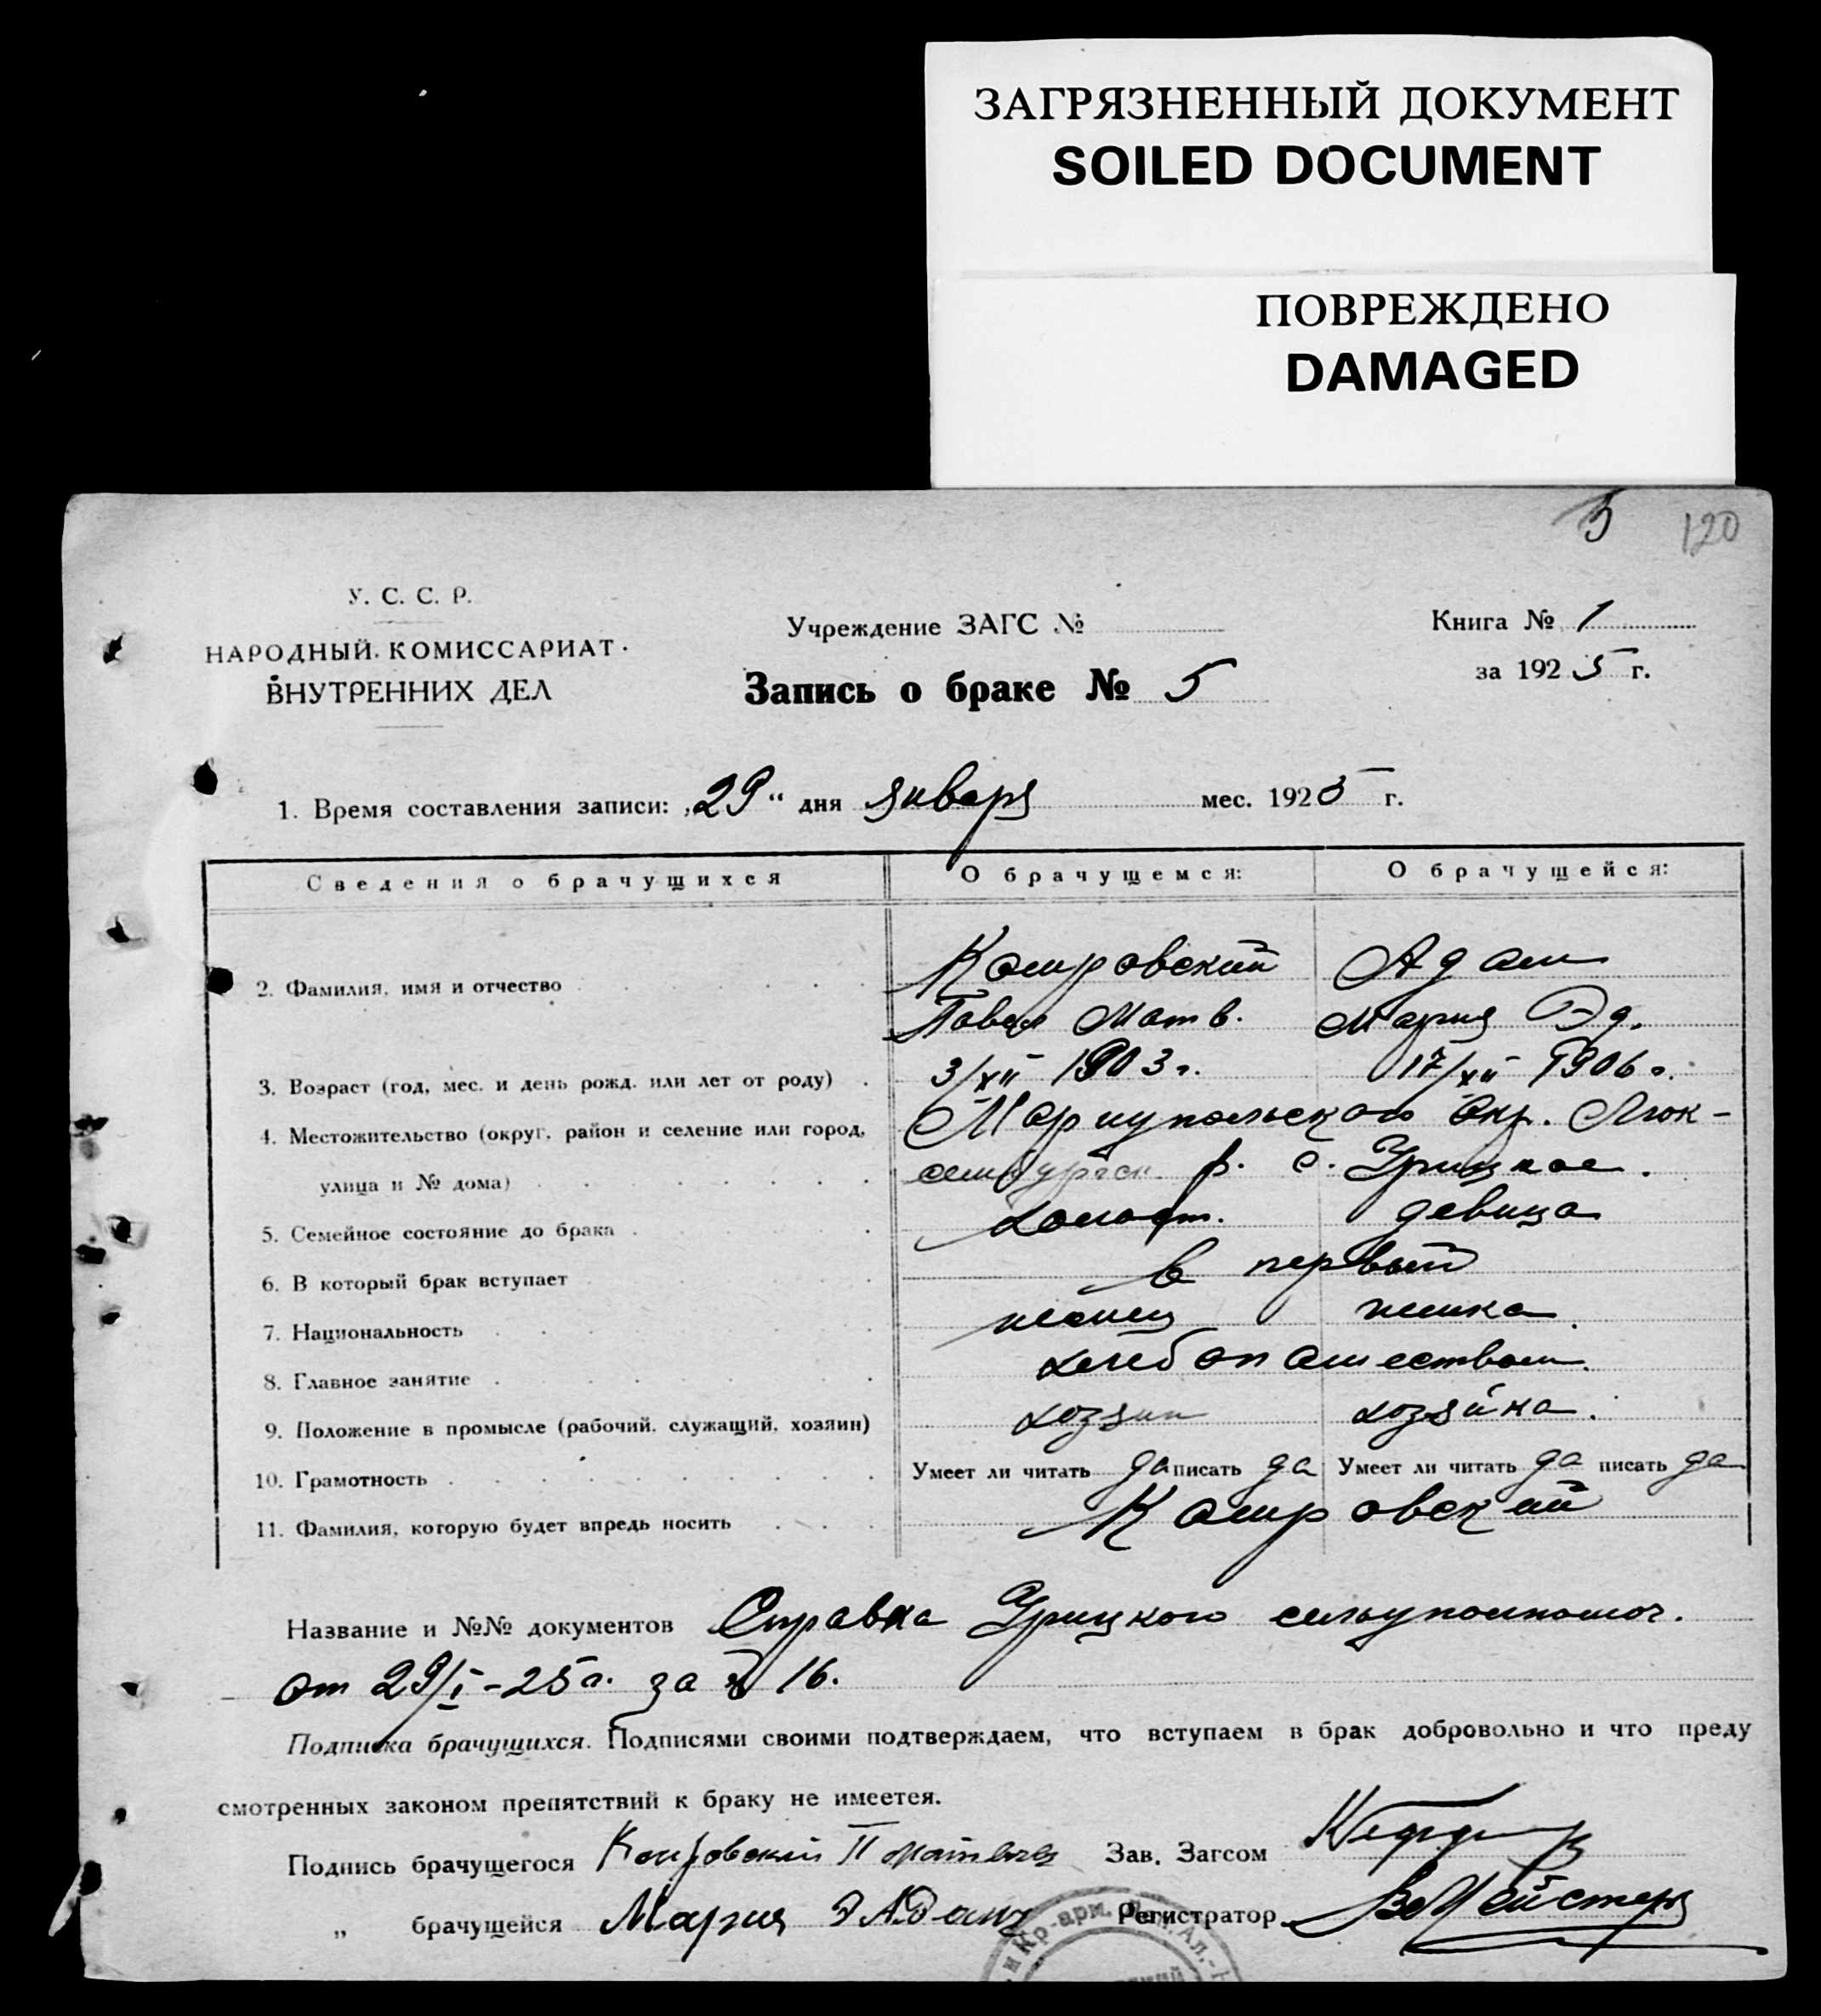 ЗАГРЯЗНЕННЫЙ ДОКУМЕНТ
SOILED DOCUMENT
ПОВРЕЖДЕНО
DAMAGED
5 120
У. С. С. Р.
НАРОДНЫЙ КОМИССАРИАТ
ВНУТРЕННИХ ДЕЛ
Учреждение ЗАГС №
Запись о браке № 5
Книга № 1
за 1925 г.
1. Время составления записи: „29“ дня января мес. 1925 г.
Сведения о брачущихся О брачущемся: О брачущейся:
2. Фамилия, имя и отчество Комровский Адам
Павел Матв. Мария Эд.
3. Возраст (год, мес. и день рожд. или лет от роду) 3/XII 1903 г. 17/XII 1906 г.
4. Местожительство (округ, район и селение или город, Мариупольского окр. Люк-
улица и № дома) сембургск р. с. Урицкое.
5. Семейное состояние до брака холост. девица
6. В который брак вступает в первый
7. Национальность немец немка.
8. Главное занятие хлебопашеством.
9. Положение в промысле (рабочий, служащий, хозяин) хозяин хозяйка.
10. Грамотность Умеет ли читать да писать да Умеет ли читать да писать да
11. Фамилия, которую будет впредь носить Комровский
Название и №№ документов Справка Урицкого сельуполномоч.
от 29/I-25 г. за № 16.
Подписка брачущихся. Подписями своими подтверждаем, что вступаем в брак добровольно и что преду
смотренных законом препятствий к браку не имеется.
Подпись брачущегося Комровский П Зав. Загсом
„ брачущейся Мария Э Адам Регистратор Мейстер